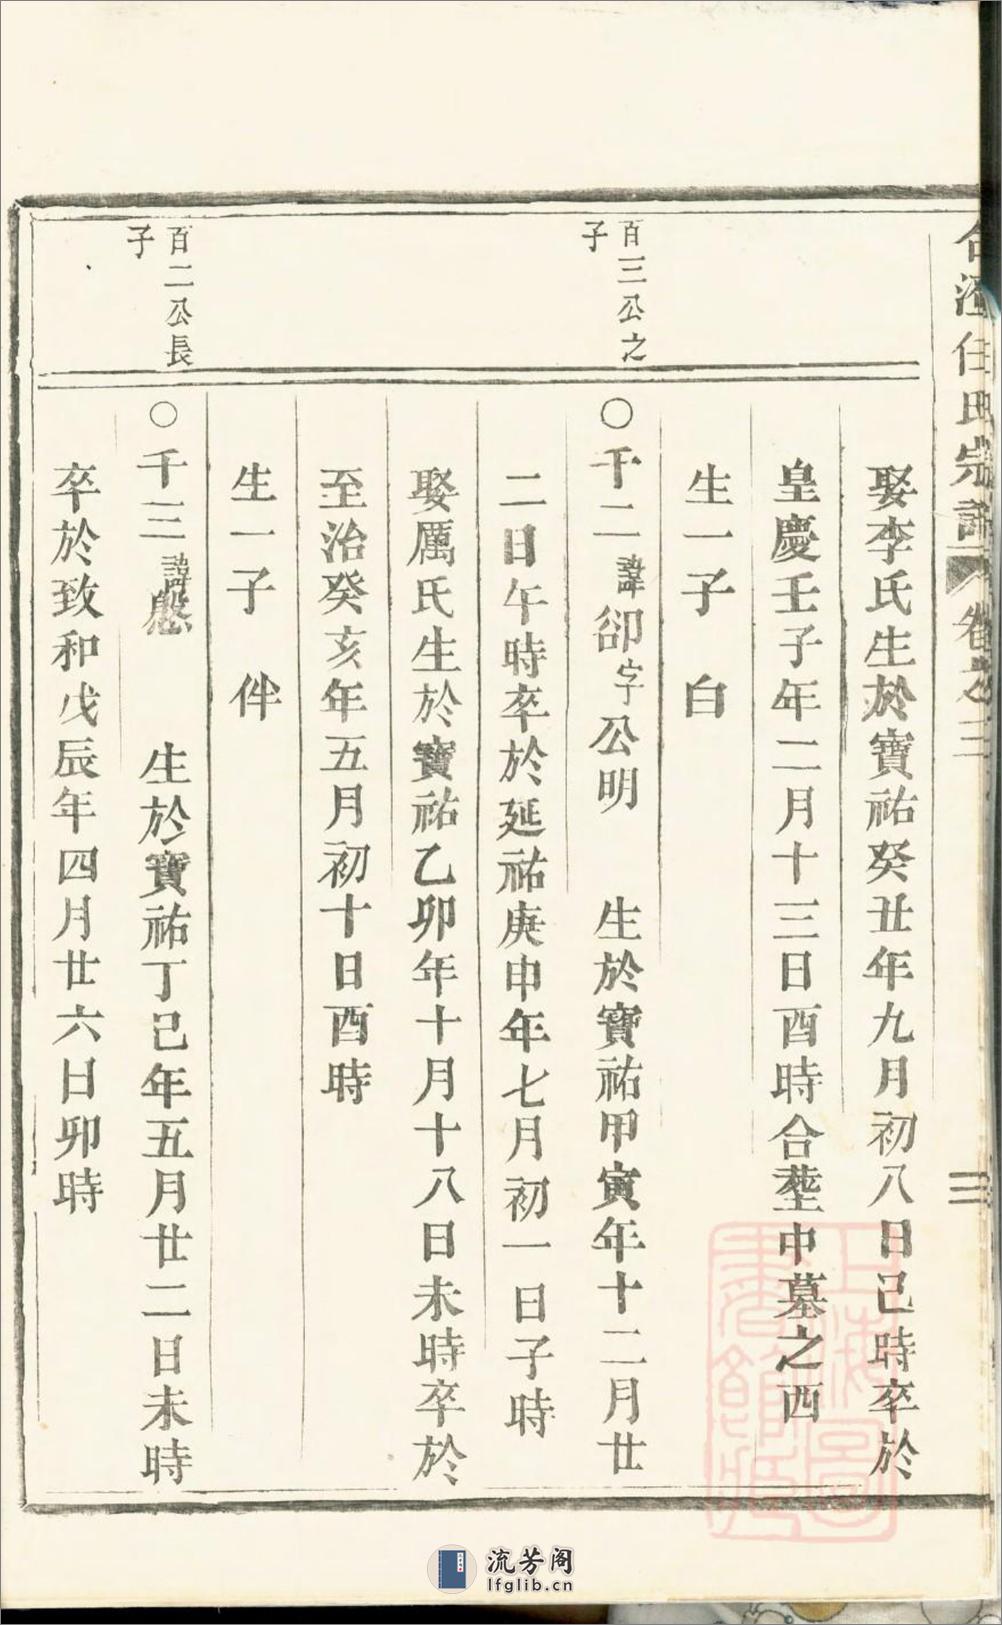 任氏宗譜 卷之三
三
娶李氏生於寶祐癸丑年九月初八日己時卒於
皇慶壬子年二月十三日酉時合塟中墓之西
生一子 白
百三公之
子
○千二諱卻字公明 生於寶祐甲寅年十二月廿
二日午時卒於延祐庚申年七月初一日子時
娶厲氏生於寶祐乙卯年十月十八日未時卒於
至治癸亥年五月初十日酉時
生一子 伴
百二公長
子
○千三諱慇 生於寶祐丁己年五月廿二日未時
卒於致和戊辰年四月廿六日卯時
上海圖書館藏
流芳阁
lfglib.cn